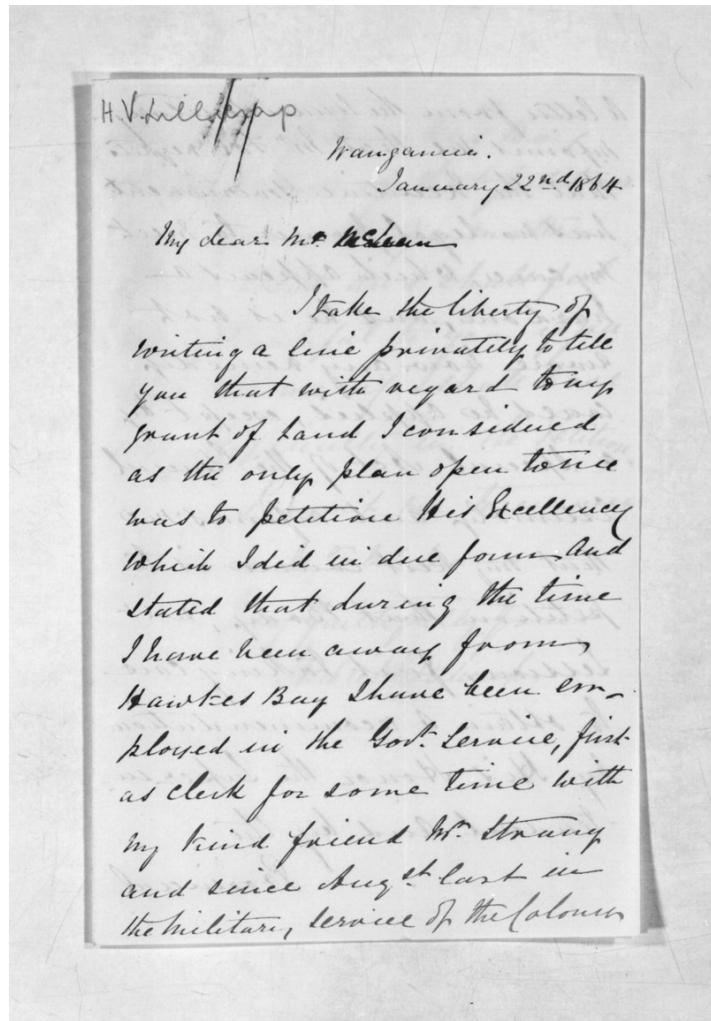 H. V. Lillicrap
Wanganui.
January 22nd 1864
My dear Mr McLean
I take the liberty of
writing a line privately to tell
you that with regard to my
grant of Land I considered
as the only plan open to me
was to petition His Excellency
which I did in due form and
stated that during the time
I have been away from
Hawkes Bay I have been em-
ployed in the Govt. Service, first
as clerk for some time with
my kind friend Mr. Strang
and since Augst last in
the Military service of the Colony